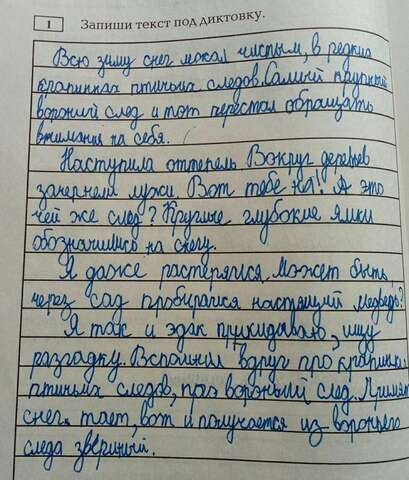 1 Запиши текст под диктовку.
Всю зиму снег лежал чистым, в редких
крапинках птичьих следов. Самый крупный
вороний след и тот перестал обращать
внимания на себя.
Наступила оттепель. Вокруг деревьев
зачернели лужи. Вот тебе на! А это
чей же след? Круглые глубокие ямки
обозначились на снегу.
Я даже растерялся. Может быть
через сад пробирался настоящий медведь?
Я так и эдак прикидываю, ищу
разгадку. Вспомнил вдруг про крапинки
птичьих следов, про вороный след.
снег тает, вот и получается из вороньего
следа звериный.